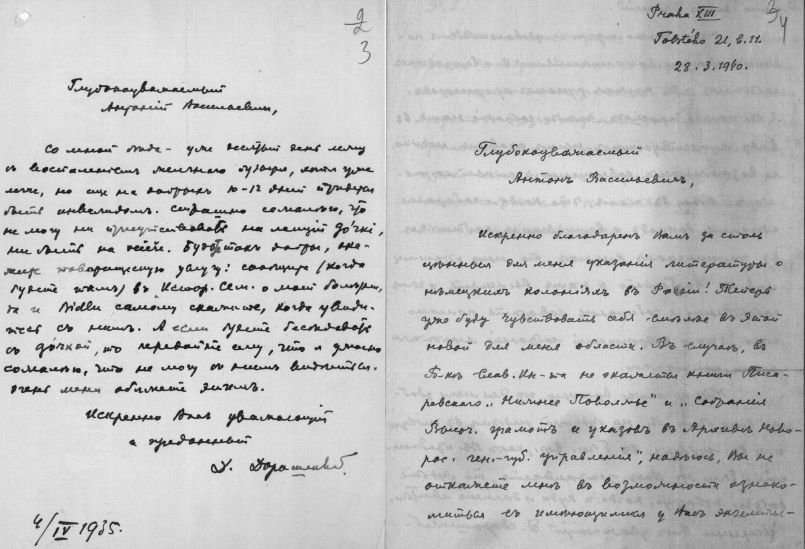 2
3
Глубокоуважаемый
Антоній Васильевич,
Со мной беда – уже десятый день лежу
съ воспаленіемъ желчнаго пузыря, хотя уже
легче, но еще на добрыхъ 10–12 дней придется
быть инвалидомъ. Страшно сожалѣю, что
не могу ни присутствовать на лекціи
ни быть на ней. Будьте такъ добры, ока-
жите товарищескую услугу: сообщите (когда
будете тамъ) въ Истор. Сем. о моей болѣзни,
да и Bidlu самому скажите, когда увиди-
тесь съ нимъ. А если будете бесѣдовать
съ то передайте ему, что я ужасно
сожалѣю, что не могу съ нимъ видѣться.
Очень меня обяжете этимъ.
Искренно Васъ уважающій
и преданный
Д. Дорошенко.
4/IV 1935.
3/4
Praha XIII
Tolstého 21, č. 11.
28. 3. 1940.
Глубокоуважаемый
Антонъ Васильевичъ,
Искренно благодаренъ Вамъ за столь
цѣнныя для меня указанія литературы о
нѣмецкихъ колоніяхъ въ Россіи! Теперь
уже буду чувствовать себя смѣлѣе въ этой
новой для меня области. Въ случаѣ, въ
Б-кѣ Слав. Ин-та не окажется книги Писа-
ревскаго „Нижнее Поволжье“ и „Собранія
Высоч. грамотъ и указовъ въ Архивѣ Ново-
рос. ген.-губ. управленія“, надѣюсь, Вы не
откажете мнѣ въ возможности ознако-
миться съ имѣющимися у Васъ экземпля-